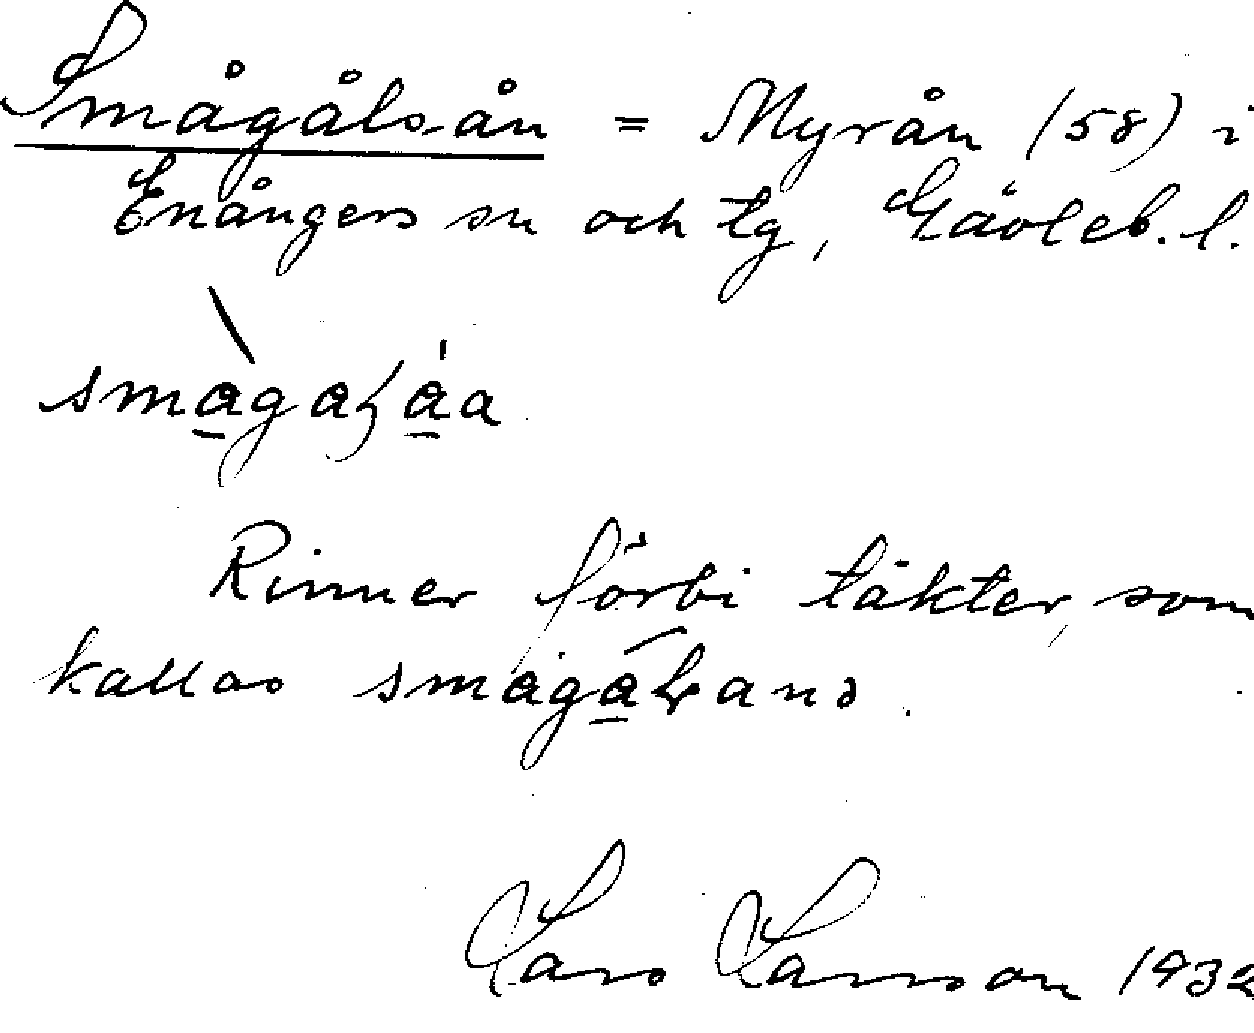 Smågåls-ån = Myrån (58) i
Enångers sn och tg, Gävleb. l.
Rinner förbi täkter, som
kallas
Lars Larsson 1932